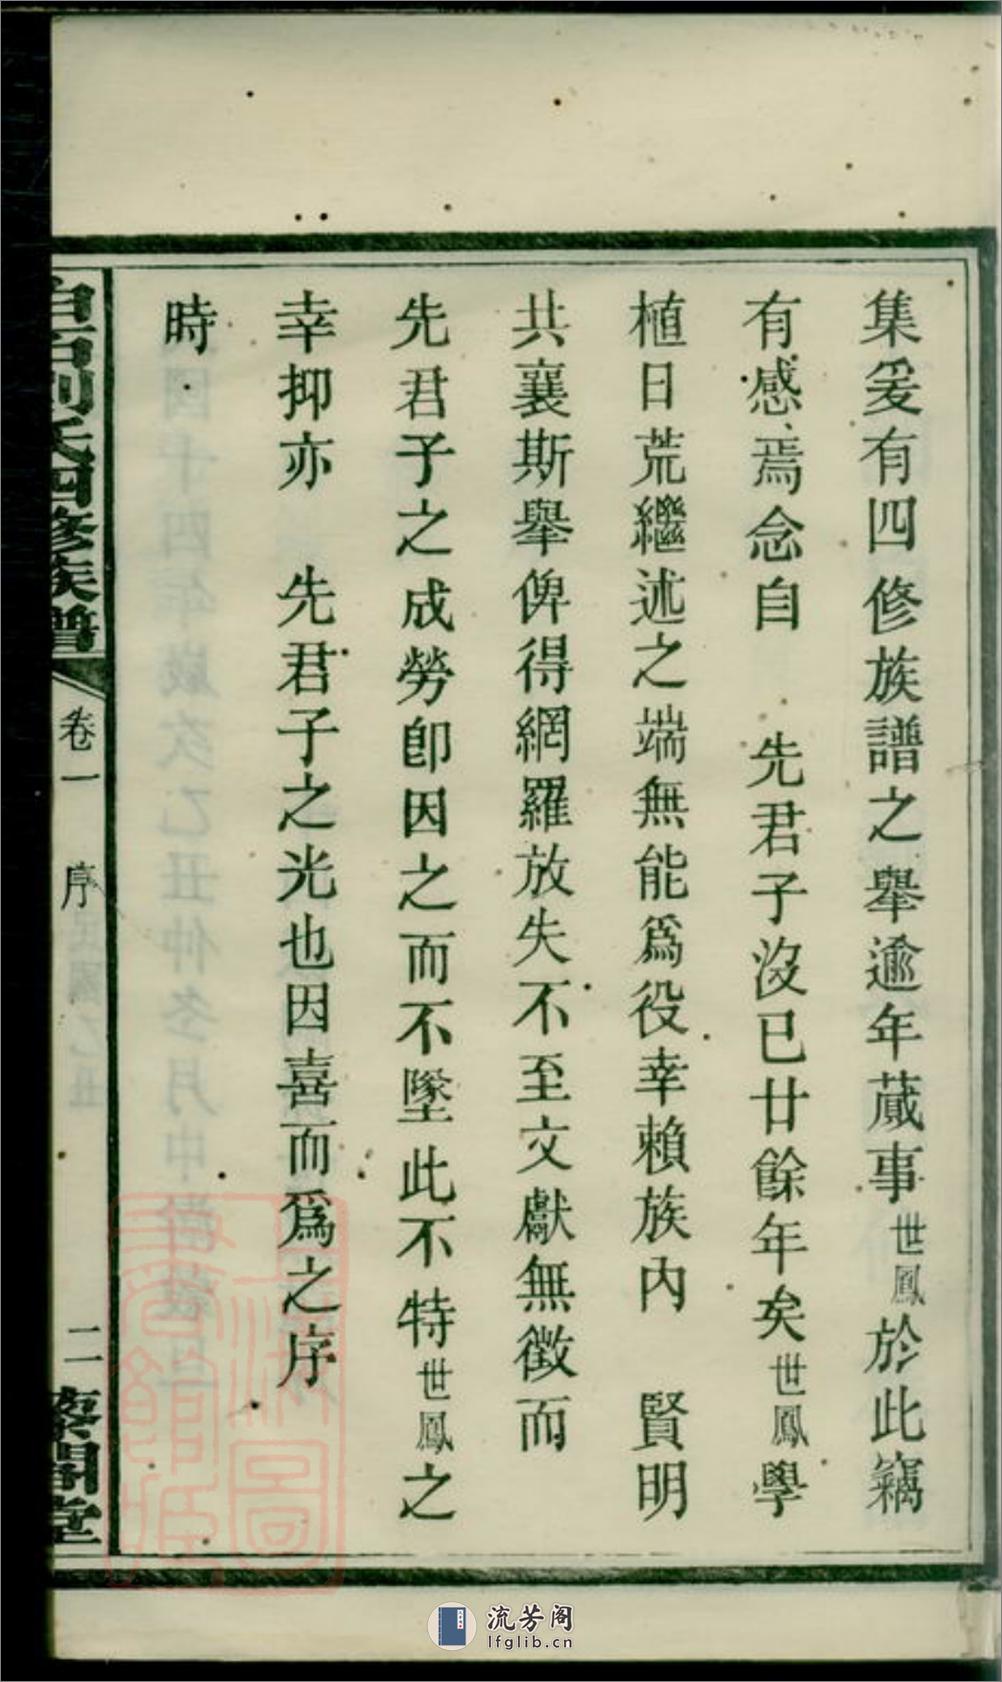 集爰有四修族譜之舉逾年蕆事世鳳於此竊
有感焉念自 先君子沒已廿餘年矣世鳳學
植日荒繼述之端無能爲役幸賴族內 賢明
共襄斯舉俾得網羅放失不至文獻無徵而
先君子之成勞卽因之而不墜此不特世鳳之
幸抑亦 先君子之光也因喜而爲之序
時
白石劉氏四修族譜
卷一
序
民國乙丑
二
藜閣堂
上海圖書館藏
流芳阁
lfglib.cn